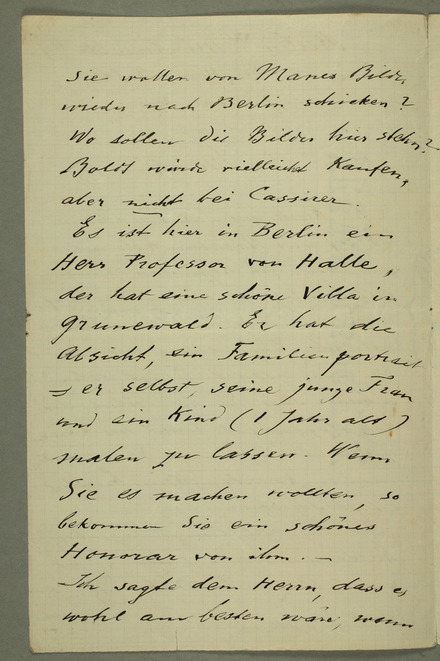 Sie wollen von Manes Bilder
wieder nach Berlin schicken?
Wo sollen die Bilder hier stehn?
würde vielleicht Kaufen,
aber nicht bei Cassirer.
Es ist hier in Berlin ein
Herr Professor von Halle,
der hat eine schöne Villa in
Grunewald. Er hat die
Absicht, ein Familienportrait
er selbst, seine junge Frau
und ein Kind (1 Jahr alt)
malen zu lassen. Wenn
Sie es machen wollten, so
bekommen Sie ein schönes
Honorar von ihm. —
Ich sagte dem Herrn, dass es
wohl am besten wäre, wenn